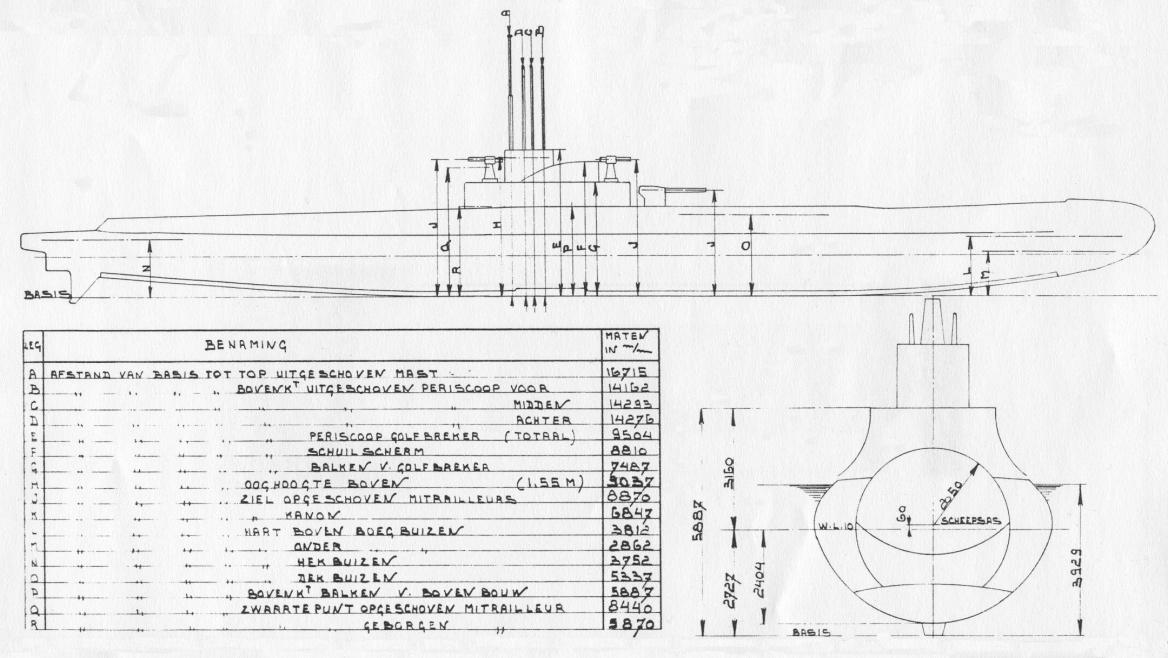 A
D C B
J Q R H E P F G J J O L M
N
BASIS
LEG BENAMING MATEN IN m/m
A AFSTAND VAN BASIS TOT TOP UITGESCHOVEN MAST 16715
B " " " " BOVENKT UITGESCHOVEN PERISCOOP VOOR 14162
C " " " " " " " MIDDEN 14293
D " " " " " " " ACHTER 14276
E " " " " " PERISCOOP GOLFBREKER (TOTAAL) 9504
F " " " " " SCHUILSCHERM 8810
G " " " " " BALKEN V. GOLFBREKER 7487
H " " " " OOGHOOGTE BOVEN " (1.55 M) 9037
J " " " " ZIEL OPGESCHOVEN MITRAILLEURS 8870
K " " " " " KANON 6847
L " " " " HART BOVEN BOEGBUIZEN 3812
M " " " " " ONDER " 2862
N " " " " " HEKBUIZEN 3752
O " " " " " DEKBUIZEN 5337
P " " " " BOVENKT BALKEN V. BOVENBOUW 5887
Q " " " " ZWAARTEPUNT OPGESCHOVEN MITRAILLEUR 8440
R " " " " " GEBORGEN " 5870
5887
3160
2727
2404
60
2050
3929
W.L.10
SCHEEPSAS
BASIS